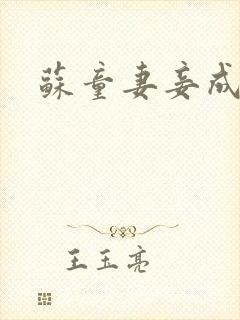 蘇童妻妾成
王玉亮